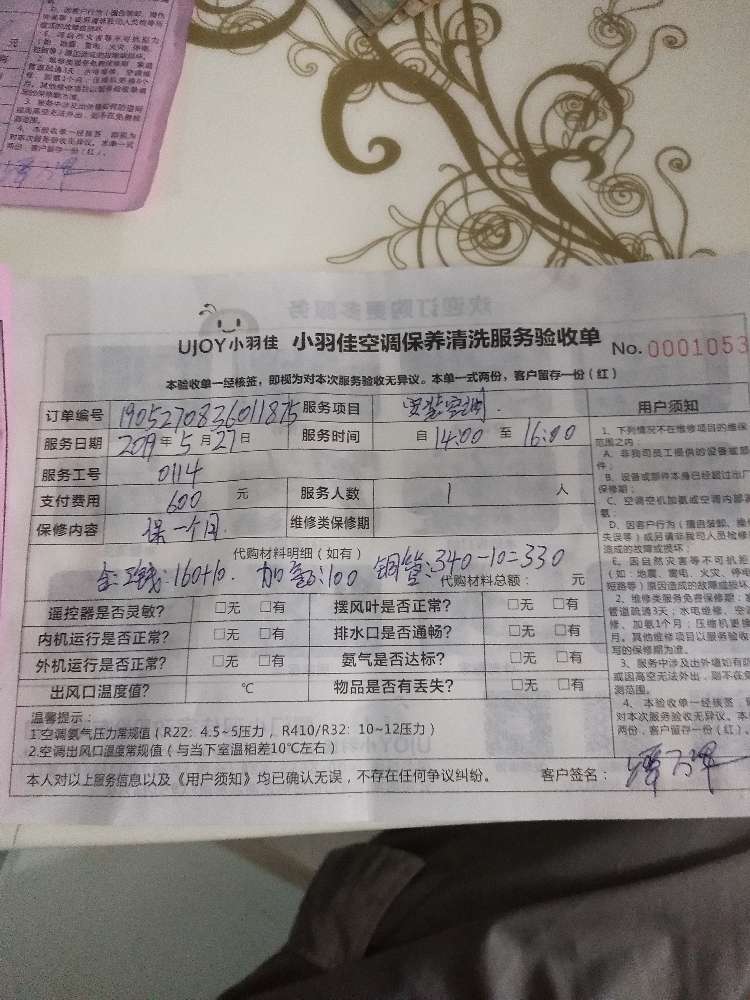 元
6、因自然灾害等不可抗力
(如:地震、雷电、火灾、停电、
3、服务中涉及出外墙如有防盗网
或因高空无法外出,则不在免费检
测范围。
4、本验收单一经核签,即视为
对本次服务验收无异议。本单一式
两份,客户留存一份(红)。
欢迎订购更多服务
UJOY小羽佳 小羽佳空调保养清洗服务验收单 No. 0001053
本验收单一经核签,即视为对本次服务验收无异议。本单一式两份,客户留存一份(红)
订单编号 1905270836011875 服务项目 用户须知
服务日期 2019年5月27日 服务时间 自 14:00 至 16:00
服务工号 0114
支付费用 600 元 服务人数 1 人
保修内容 保一个月 维修类保修期
代购材料明细(如有)
160+10. 加氨:100 铜管:340-10=330
代购材料总额: 元
遥控器是否灵敏? □无 □有 摆风叶是否正常? □无 □有
内机运行是否正常? □无 □有 排水口是否通畅? □无 □有
外机运行是否正常? □无 □有 氨气是否达标? □无 □有
出风口温度值? ℃ 物品是否有丢失? □无 □有
温馨提示:
1.空调氨气压力常规值(R22:4.5~5压力,R410/R32:10~12压力)
2.空调出风口温度常规值(与当下室温相差10℃左右)
本人对以上服务信息以及《用户须知》均已确认无误,不存在任何争议纠纷。 客户签名:
1、下列情况不在维修项目的维保
范围之内:
A、非我司员工提供的设备或部
件;
B、设备或部件本身已经超过出厂
保修期;
C、空调空机加氨或空调内部漏
氨;
D、因客户行为(擅自装卸、操
失误等)或另请非我司人员检修
造成的故障或损坏;
E、因自然灾害等不可抗
(如:地震、雷电、火灾、停电
短路等)原因造成的故障或损坏。
2、维修类服务免费保修期:
管道疏通3天;水电维修、空
修、加氨1个月;压缩机更换
月。其他维修项目以服务验收
写的保修期为准。
3、服务中涉及出外墙如有防
或因高空无法外出,则不在免
测范围。
4、本验收单一经核签,
对本次服务验收无异议。本
两份,客户留存一份(红)。